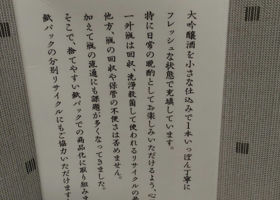 大吟醸酒を小さな仕込みで1本いっぽん丁寧に
フレッシュな状態で充填しています。
特に日常の晩酌としてお楽しみいただけるよう、心
一升瓶は回収、洗浄殺菌して使われるリサイクルの
他方、瓶の回収や保管の不便さは否めません。
加えて瓶の流通にも課題が多くなってきました。
そこで、捨てやすい紙パックでの商品化に取り組みま
紙パックの分別リサイクルにもご協力いただけます